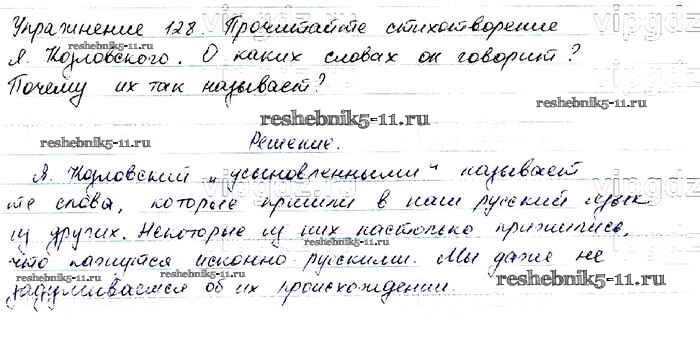 Упражнение 128. Прочитайте стихотворение
Я. Козловского. О каких словах он говорит?
Почему их так называет?
Решение.
Я. Козловский „усыновленными" называет
те слова, которые пришли в наш русский язык
из других. Некоторые из них настолько прижились,
что кажутся исконно русскими. Мы даже не
задумываемся об их происхождении.
vipgdz
reshebnik5-11.ru
reshebnik5-11.ru
reshebnik5-11.ru
reshebnik5-11.ru
reshebnik5-11.ru
reshebnik5-11.ru
reshebnik5-11.ru
reshebnik5-11.ru